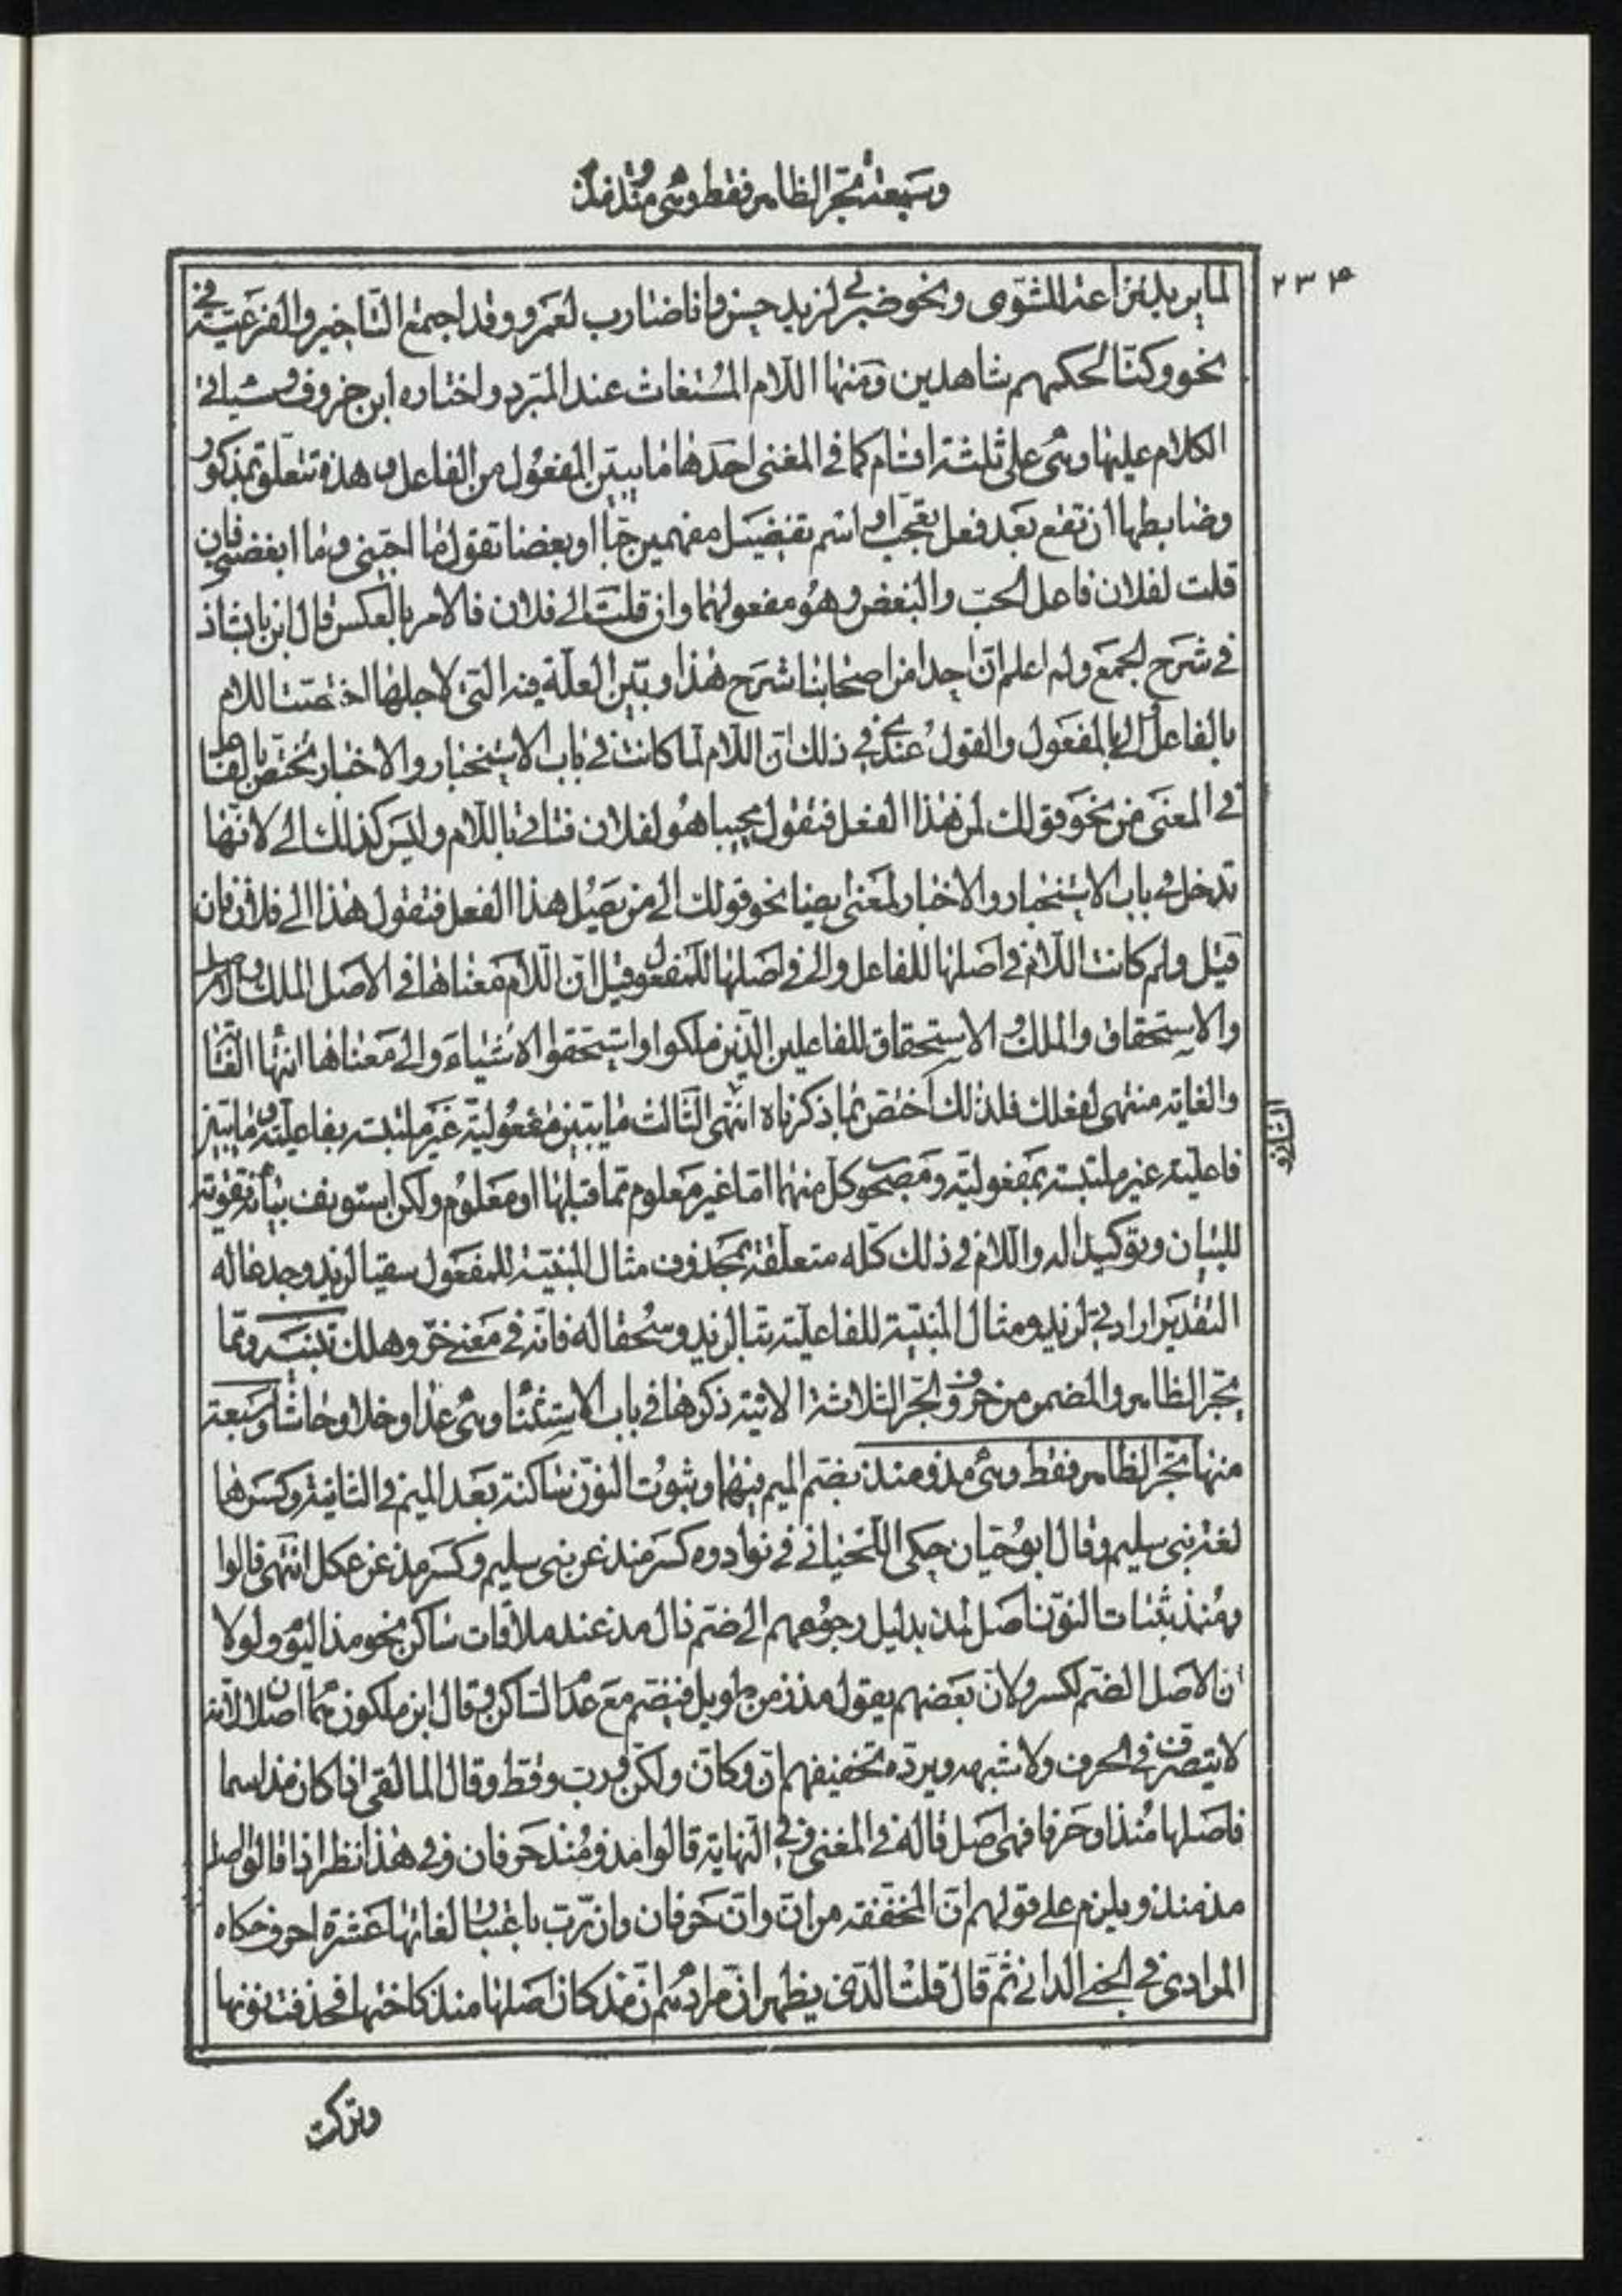 وسبعة تجر الظاهر فقط وهى منذ ومذ
٢٣٤
لما يريد نزاعة للشوى ونحو ضربى لزيد حسن وانا ضارب لعمرو وقد اجتمع التاخير والفرعية فى
نحو وكنا لحكمهم شاهدين ومنها اللام المستغاث عند المبرد واختاره ابن خروف وسياتى
الكلام عليها وهى على ثلثة اقسام كما فى المغنى احدها ما يبين المفعول من الفاعل وهذه تتعلق بمذكور
وضابطها ان تقع بعد فعل تعجب او اسم تفضيل مفهمين حبا او بغضا تقول ما احبنى وما ابغضنى فان
قلت لفلان فاعل الحب والبغض وهو مفعولهما وان قلت الى فلان فالامر بالعكس قال ابن بابشاذ
فى شرح الجمع ولم اعلم ان احدا من اصحابنا شرح هذا وبين العلة فيه التى لاجلها اختصت اللام
بالفاعل والى بالمفعول والقول عندى فى ذلك ان اللام لما كانت فى باب الاستخبار والاخبار تختص بالفاعل
فى المعنى من نحو قولك لمن هذا الفعل فتقول مجيبا هو لفلان فتاتى باللام وليس كذلك الى لانها
تدخل فى باب الاستخبار والاخبار لمعنى ايضا نحو قولك الى من يصل هذا الفعل فتقول هذا الى فلان فان
قيل ولم كانت اللام فى اصلها للفاعل والى فى اصلها للمفعول قيل ان اللام معناها فى الاصل الملك
والاستحقاق والملك والاستحقاق للفاعلين الذين ملكوا واستحقوا الاشياء والى معناها انتهاء الغاية
والغاية منتهى لفعلك فلذلك اختص بما ذكرناه انتهى الثالث ما يبين مفعولية غير ملتبسة بفاعلية وما يبين
الثانى و
فاعلية غير ملتبسة بمفعولية ومصحوب كل منهما اما غير معلوم مما قبلها او معلوم ولكن استونف بيانه تقوية
للبيان وتوكيدا له واللام فى ذلك كله متعلقة بمحذوف مثال المبينة للمفعول سقيا لزيد وجدعا له
التقدير ارادتى لزيد ومثال المبينة للفاعلية تبا لزيد وسحقا له فانه فى معنى خسر وهلك تنبيه ومما
يجر الظاهر والمضمر من حروف الجر الثلاثة الاتية ذكرها فى باب الاستثناء وهى عدا وخلا وحاشا وسبعة
منها تجر الظاهر فقط وهى مذ ومنذ بضم الميم فيهما وثبوت النون ساكنة بعد الميم فى الثانية وكسرها
لغة بنى سليم وقال ابو حيان حكى اللحيانى فى نوادره كسر منذ عن بنى سليم وكسر مذ عن عكل انتهى قالوا
ومنذ بثبات النون اصل لمذ بدليل رجوعهم الى ضم ذال مذ عند ملاقات ساكن نحو مذ اليوم ولولا
ان الاصل الضم لكسر ولان بعضهم يقول مذ زمن طويل فيضم مع عدم الساكن وقال ابن ملكون هما اصلان لانه
لا يتصرف فى الحرف ولا شبهه ويرده تخفيفهم ان وكان ولكن ورب وقط وقال المالقى اذا كان مذ اسما
فاصلها منذ او حرفا فهى اصل قاله فى المغنى وفى النهاية قالوا مذ ومنذ حرفان وفى هذا نظر اذا قالوا اصل
مذ منذ ويلزم على قولهم ان المخففة من ان وان حرفان وان رب باعتبار لغاتها عشرة احرف حكاه
المرادى فى الجنى الدانى ثم قال قلت الذى يظهر ان مرادهم ان مذ كان اصلها منذ كاختها فحذفت نونها
وتركت